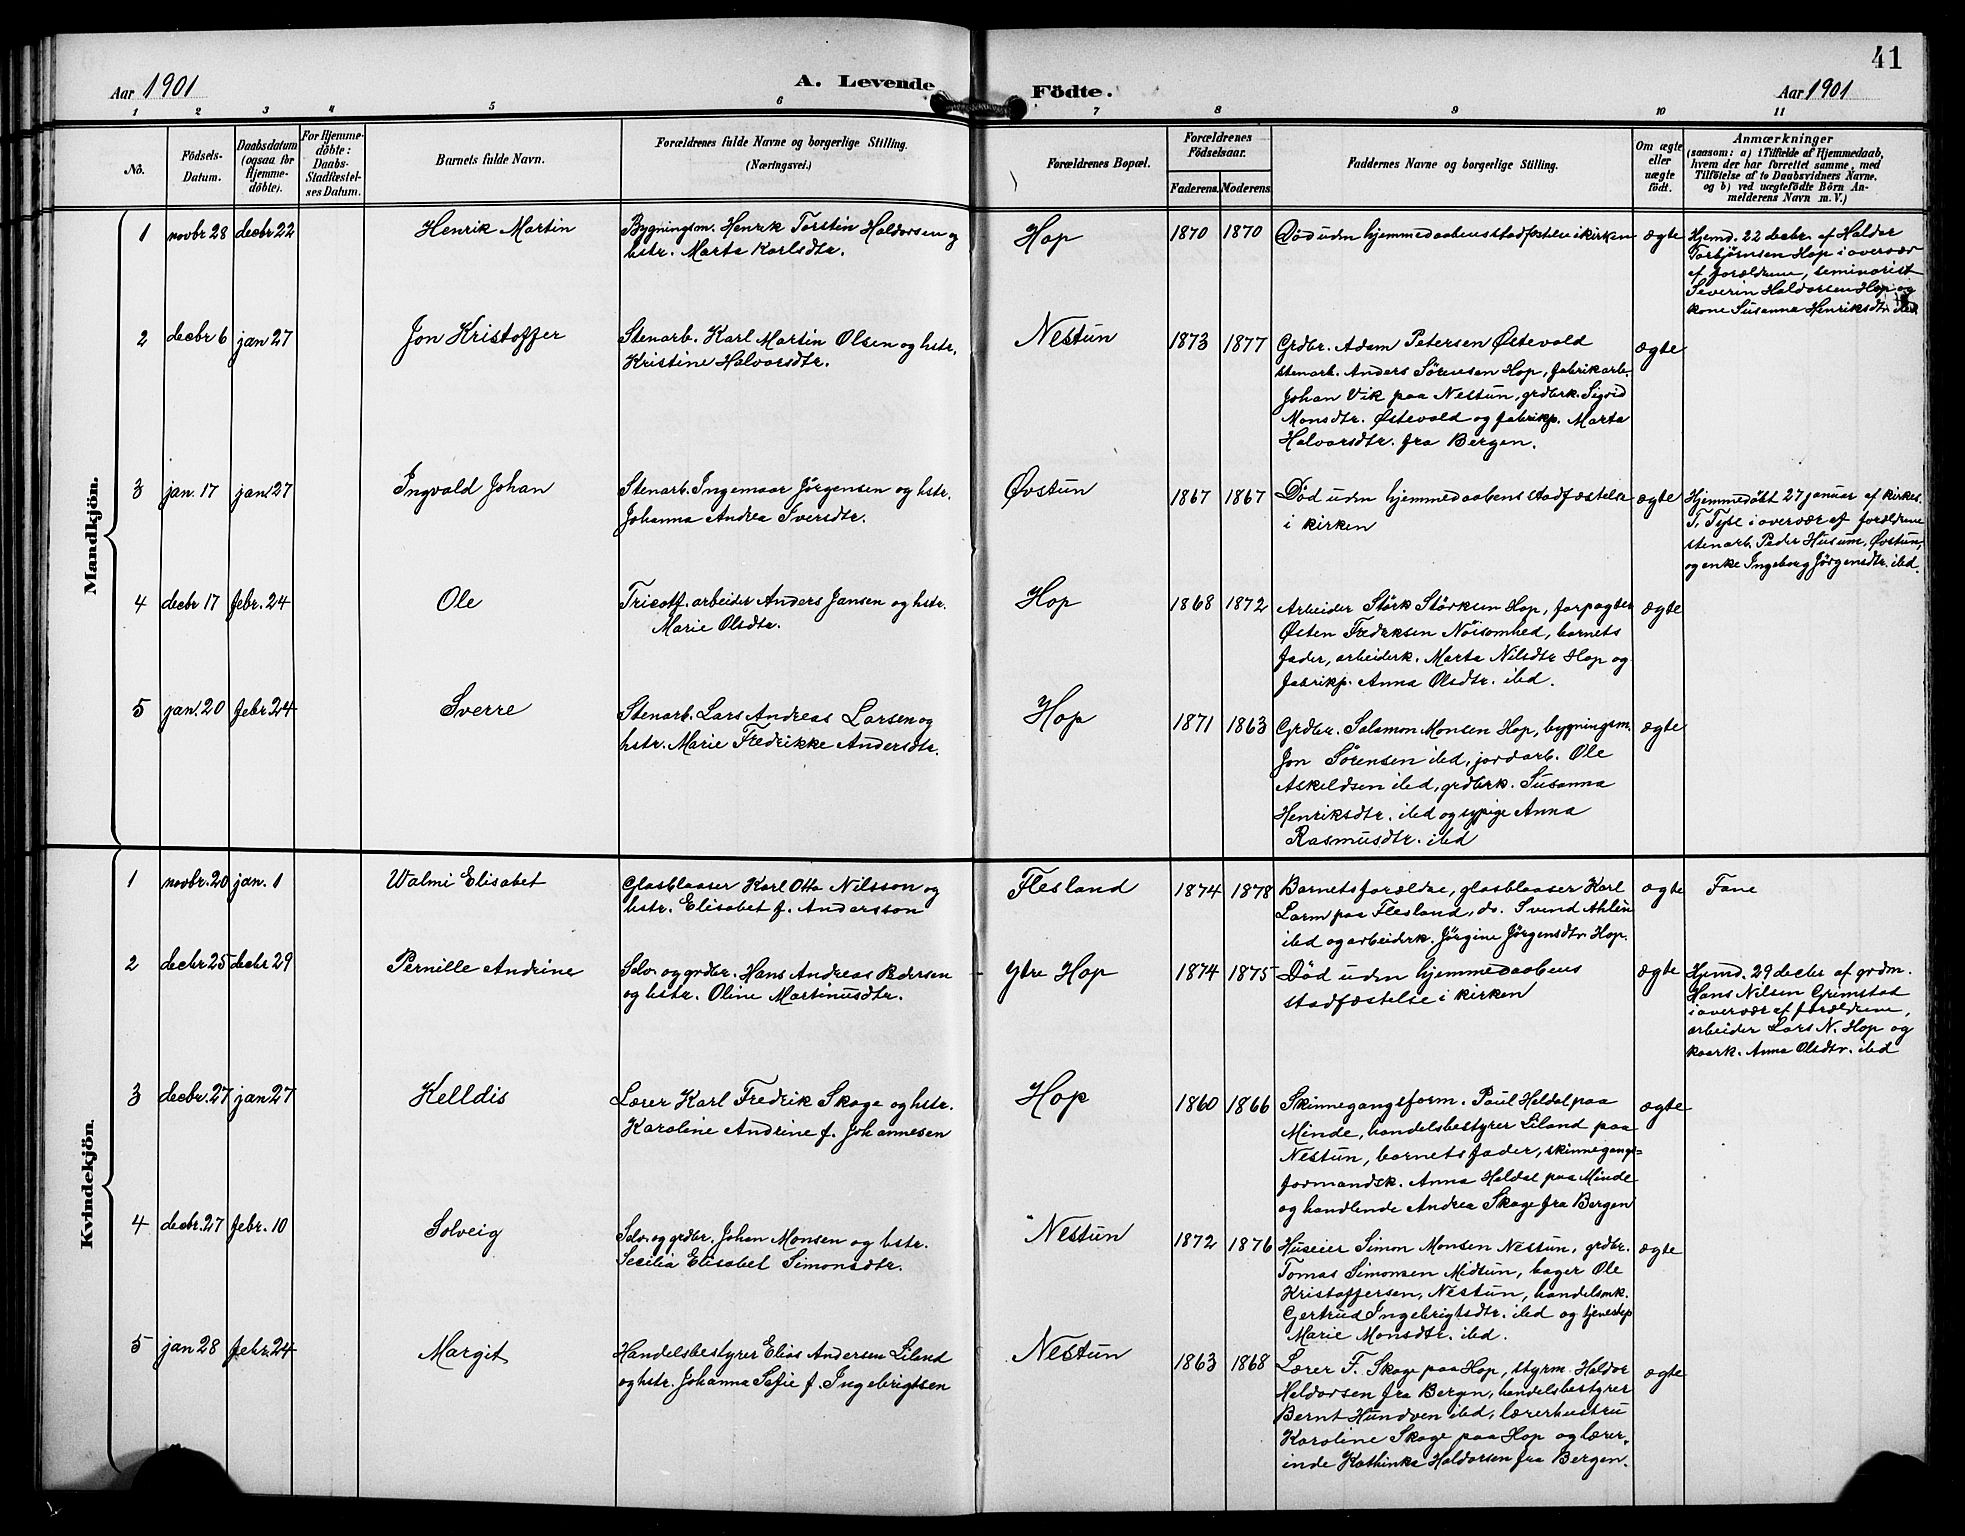 41
Aar 1901
A. Levende Födte.
Aar 1901
1 2 3 4 5 6 7 8 9 10 11
No.
Födsels-
Datum.
Daabsdatum
(ogsaa for
Hjemme-
döbte).
For Hjemme-
döbte:
Daabs-
Stadfæstel-
ses Datum.
Barnets fulde Navn.
Forældrenes fulde Navne og borgerlige Stilling.
(Næringsvei.)
Forældrenes Bopæl.
Forældrenes
Födselsaar.
Faderens. Moderens.
Faddernes Navne og borgerlige Stilling.
Om ægte
eller
uægte
födt.
Anmærkninger
(saasom: a) i Tilfælde af Hjemmedaab,
hvem der har forrettet samme, med
Tilföielse af to Daabsvidners Navne,
og b) ved uægtefödte Börn An-
melderens Navn m. V.)
Mandkjön.
1 novbr 28 decbr 22 Henrik Martin
Bygningsm. Henrik Torstin Haldorsen og
hstr. Marta Karlsdtr.
Hop 1870 1870
Död uden hjemmedaabens stadfæstelse i kirken
ægte
Hjemd. 22 decbr. af Haldor
Torbjørnsen Hop i overvær
af forældrene, seminarist
Severin Haldorsen Hop og
kone Susanna Henriksdtr. ibd
2 decbr 6 jan 27 Jon Kristoffer
Stenarb. Karl Martin Olsen og hstr.
Kristine Halvorsdtr.
Nestun 1873 1877
Grdbr. Adam Petersen Østevold
stenarb. Anders Sörensen Hop, fabrikarb.
Johan Vik paa Nestun, grdbrk. Sigrid
Monsdtr. Østevold og fabrikp. Marta
Halvorsdtr. fra Bergen.
ægte
3 jan. 17 jan 27 Ingvald Johan
Stenarb. Ingemar Jörgensen og hstr.
Johanna Andrea Iversdtr.
Øvstun 1867 1867
Död uden hjemmedaabens stadfæstelse
i kirken
ægte
Hjemmedöbt 27 januar af kirkes.
T. Tyse i overvær af forældrene
stenarb. Peder Husum, Øvstun,
og enke Ingeborg Jörgensdtr. ibd.
4 decbr 17 febr. 24 Ole
Tricotf. arbeider Anders Jansen og hstr.
Marie Olsdtr.
Hop 1868 1872
Arbeider Störk Störksen Hop, forpagter
Østen Fredriksen Nöisomhed, barnets
fader, arbeiderk. Marta Nilsdtr Hop og
fabrikp. Anna Olsdtr. ibd.
ægte
5 jan. 20 febr. 24 Sverre
Stenarb. Lars Andreas Larsen og
hstr. Marie Fredrikke Andersdtr.
Hop 1871 1863
Grdbr. Salamon Monsen Hop, bygningsm.
Jon Sörensen ibd, jordarb. Ole
Askeldsen ibd, grdbrk. Susanna
Henriksdtr. ibd og sypige Anna
Rasmusdtr. ibd
ægte
Kvindekjön.
1 novbr. 20 jan. 1 Valmi Elisabet
Glasblaaser Karl Otto Nilsson og
hstr. Elisabet f. Andersson
Flesland 1874 1878
Barnets forældre, glasblaaser Karl
Larm paa Flesland, do. Svend Ahlén
ibd og arbeiderk. Jörgine Jörgensdtr. Hop.
ægte
Fane
2 decbr 25 decbr 29 Pernille Andrine
Selv. og grdbr. Hans Andreas Pedersen
og hstr. Oline Martinusdtr.
Ytre Hop 1874 1875
Död uden hjemmedaabens
stadfæstelse i kirken
ægte
Hjemd. 29 decbr af grdm.
Hans Nilsen Grimstad
i overvær af forældrene,
arbeider Lars N. Hop og
kaark. Anna Olsdtr. ibd
3 decbr. 27 jan 27 Kelldis
Lærer Karl Fredrik Skage og hstr.
Karoline Andrine f. Johannesen
Hop 1860 1866
Skinnegangsform. Paul Heldal paa
Minde, handelsbestyrer Liland paa
Nestun, barnets fader, skinnegangs=
formandsk. Anna Heldal paa Minde
og handlende Andrea Skage fra Bergen
ægte
4 decbr. 27 febr. 10 Solveig
Selv. og grdbr. Johan Monsen og hstr.
Secilia Elisabet Simonsdtr.
Nestun 1872 1876
Huseier Simon Monsen Nestun, grdbr.
Tomas Simonsen Midtun, bager Ole
Kristoffersen, Nestun, handelsmk.
Gertrud Ingebrigtsdtr. ibd og tjenestep
Marie Monsdtr. ibd.
ægte
5 jan 28 febr. 24 Margit
Handelsbestyrer Elias Andersen Liland
og hstr. Johanna Sofie f. Ingebrigtsen
Nestun 1863 1868
Lærer F. Skage paa Hop, styrm. Haldor
Haldorsen fra Bergen, handelsbestyrer
Bernt Hundven ibd, lærerhustru
Karoline Skage paa Hop og lærer-
inde Kathinka Haldorsen fra Bergen.
ægte